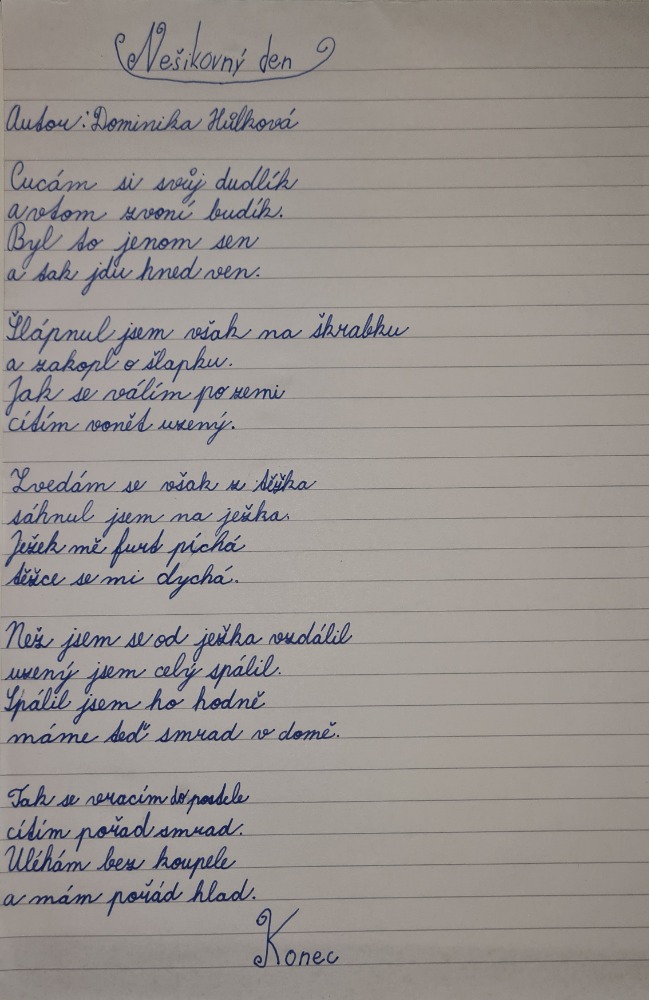 Nešikovný den
Autor: Dominika Hůlková
Cucám si svůj dudlík
a vtom zvoní budík.
Byl to jenom sen
a tak jdu hned ven.
Šlápnul jsem však na škrabku
a zakopl o šlapku.
Jak se válím po zemi
cítím vonět uzený.
Zvedám se však z těžka
sáhnul jsem na ježka.
Ježek mě furt píchá
těžce se mi dychá.
Než jsem se od ježka vzdálil
uzený jsem celý spálil.
Spálil jsem ho hodně
máme teď smrad v domě.
Tak se vracím do postele
cítím pořad smrad.
Uléhám bez koupele
a mám pořád hlad.
Konec